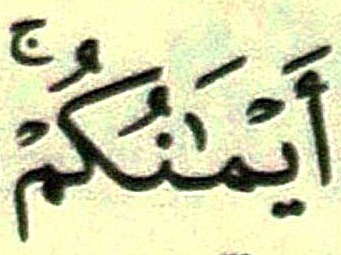 أَيْمَٰنُكُمْۚ